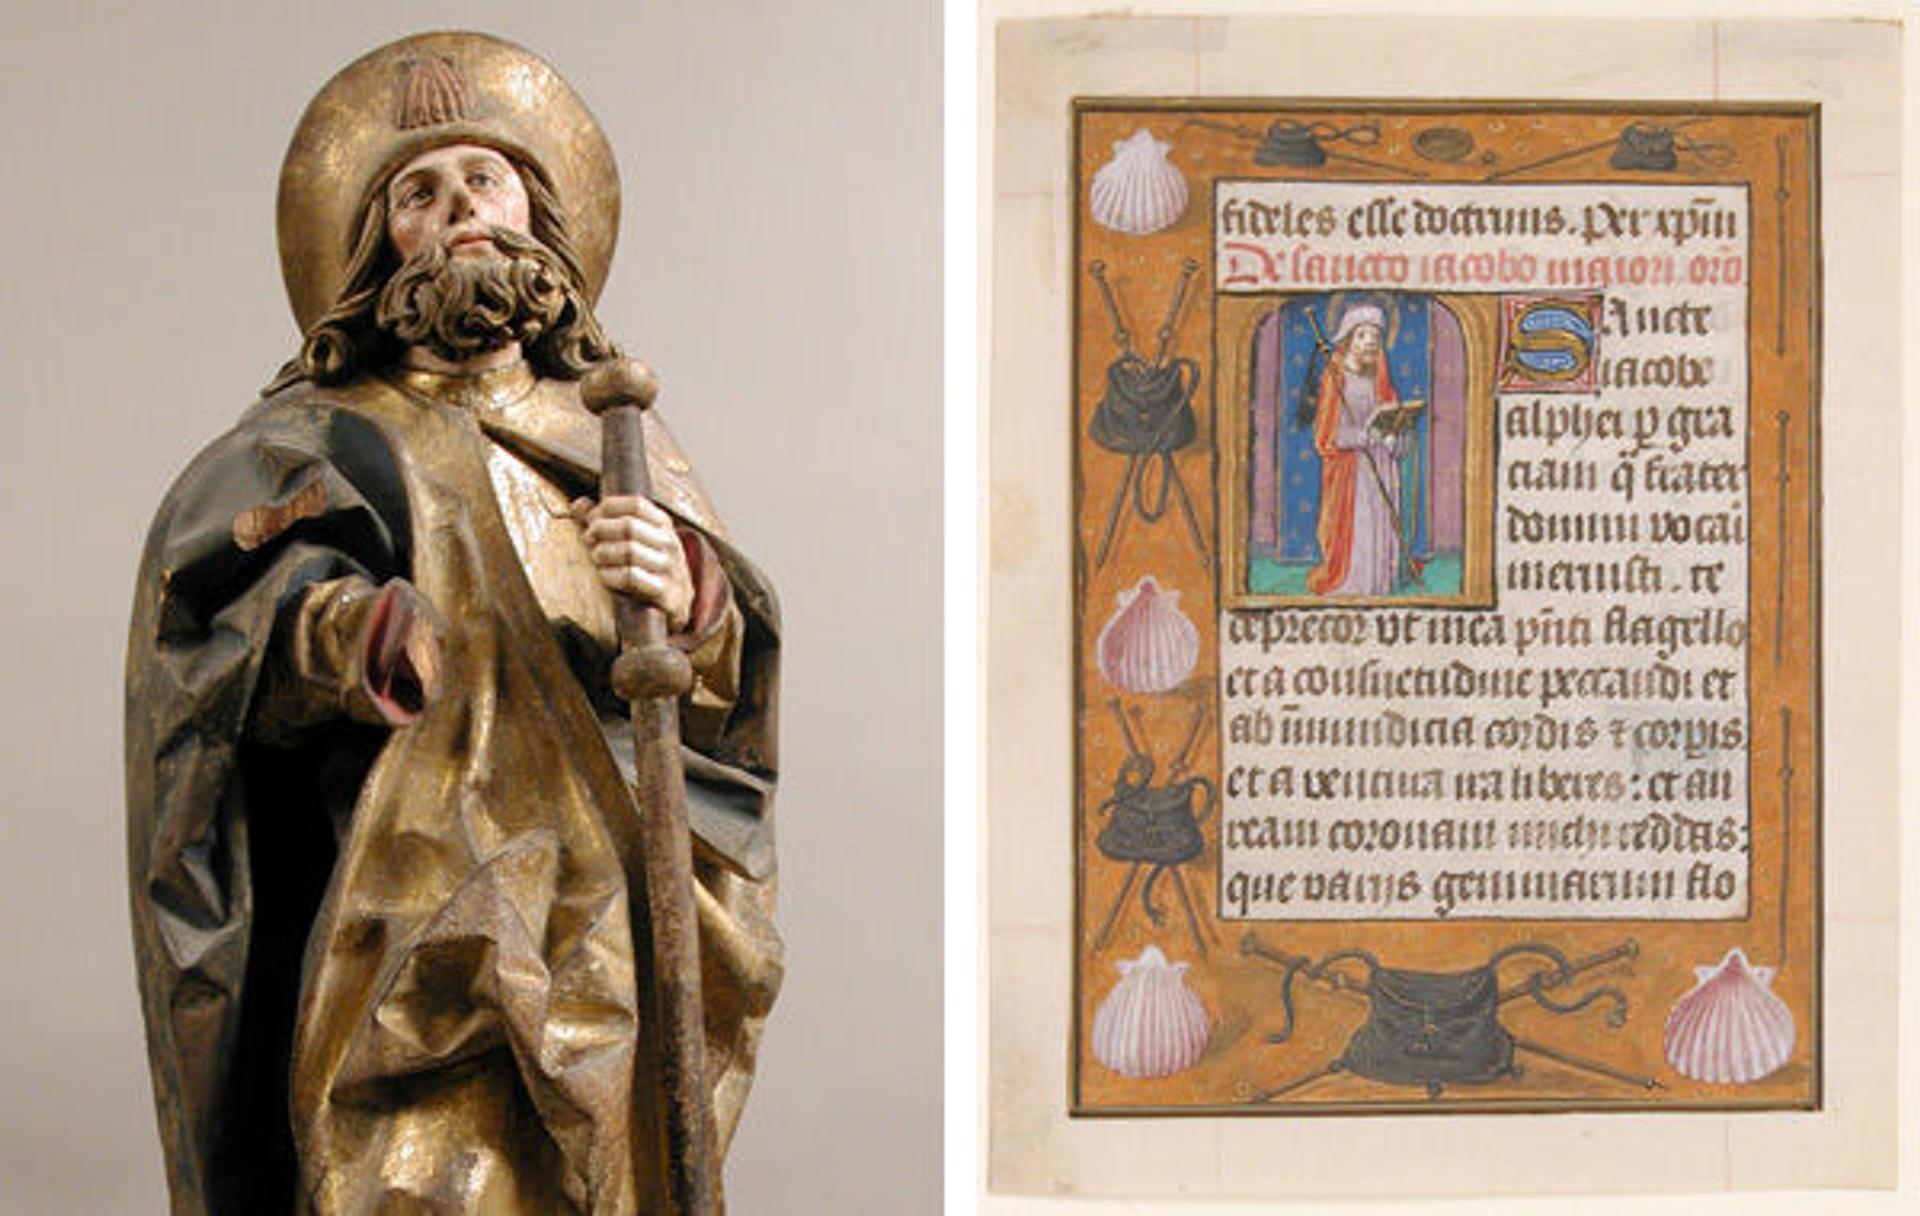 fideles esse doctrinis. Per xp̄m
De sancto iacobo maiori. oro̅
Sancte
iacobe
alphei p gra
ciam q̄ frater
domini vocai
meruisti. te
deprecor vt mea pn̄ti flagello
et a consuetudine peccandi et
ab inmundicia cordis ⁊ corpis.
et a ventura ira liberes: et au
ream coronam michi reddas:
que varijs gemmarum flo